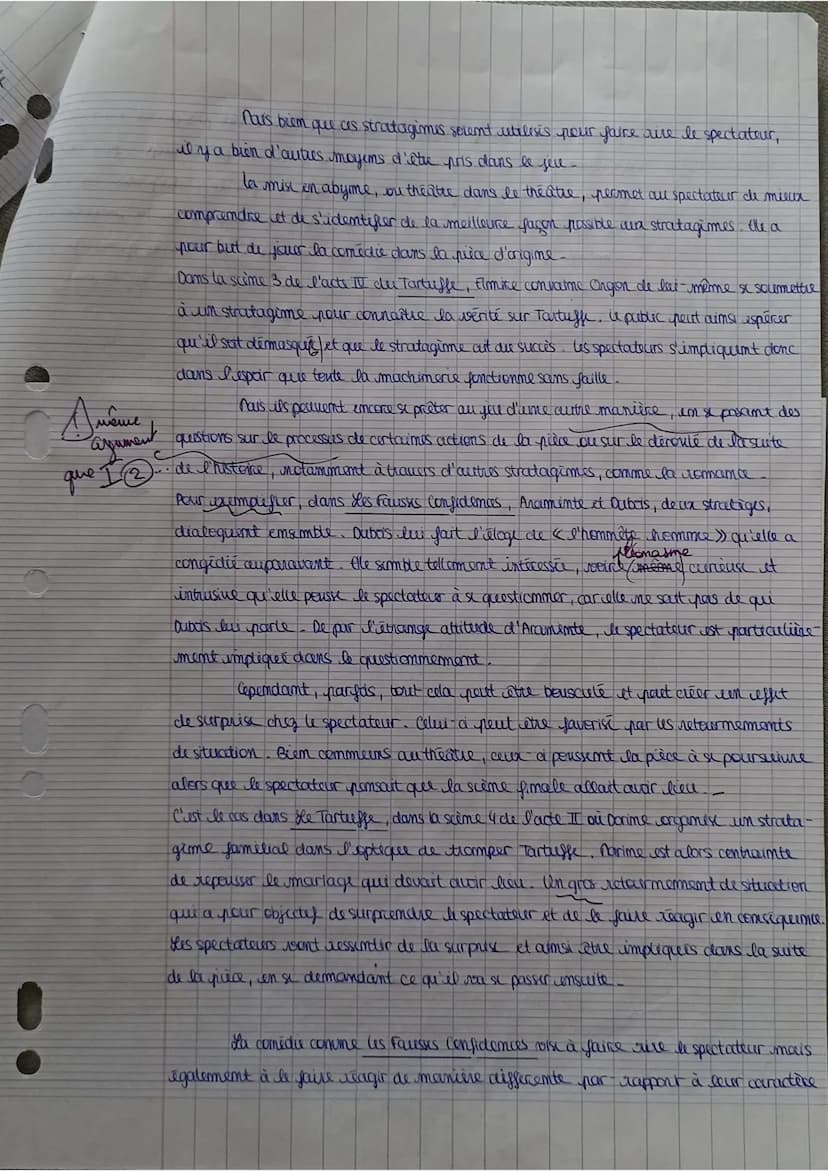 Mais bien que ces stratagèmes soient utilisés pour faire rire le spectateur,
il y a bien d'autres moyens d'être pris dans le jeu.
La mise en abyme, ou théâtre dans le théâtre, permet au spectateur de mieux
comprendre et de s'identifier de la meilleure façon possible aux stratagèmes. Elle a
pour but de jouer la comédie dans la pièce d'origine.
Dans la scène 3 de l'acte IV du Tartuffe, Elmire convainc Orgon de lui-même se soumettre
à un stratagème pour connaître la vérité sur Tartuffe. Le public peut ainsi espérer
qu'il soit démasqué et que le stratagème ait du succès. Les spectateurs s'impliquent donc
dans l'espoir que toute la machinerie fonctionne sans faille.
Mais ils peuvent encore se prêter au jeu d'une autre manière, en se posant des
même
argument
questions sur le processus de certaines actions de la pièce ou sur le déroulé de la suite
que I 2
de l'histoire, notamment à travers d'autres stratagèmes, comme la romance.
Pour exemplifier, dans Les Fausses Confidences, Araminte et Dubois, deux stratèges,
dialoguent ensemble. Dubois lui fait l'éloge de « l'honnête homme » qu'elle a
pléonasme
congédié auparavant. Elle semble tellement intéressée, voire même curieuse et
intrusive qu'elle pousse le spectateur à se questionner, car elle ne sait pas de qui
Dubois lui parle. De par l'étrange attitude d'Araminte, le spectateur est particulière-
ment impliqué dans le questionnement.
Cependant, parfois, tout cela peut être bousculé et peut créer un effet
de surprise chez le spectateur. Celui-ci peut être favorisé par les retournements
de situation. Bien communs au théâtre, ceux-ci poussent la pièce à se poursuivre
alors que le spectateur pensait que la scène finale allait avoir lieu.
C'est le cas dans Le Tartuffe, dans la scène 4 de l'acte II où Dorine organise un strata-
gème familial dans l'optique de tromper Tartuffe. Marime est alors contrainte
de repousser le mariage qui devait avoir lieu. Un gros retournement de situation
qui a pour objectif de surprendre le spectateur et de le faire réagir en conséquence.
Les spectateurs vont ressentir de la surprise et ainsi être impliqués dans la suite
de la pièce, en se demandant ce qu'il va se passer ensuite.
La comédie comme Les Fausses Confidences vise à faire rire le spectateur mais
également à le faire réagir de manière différente par rapport à leur caractère